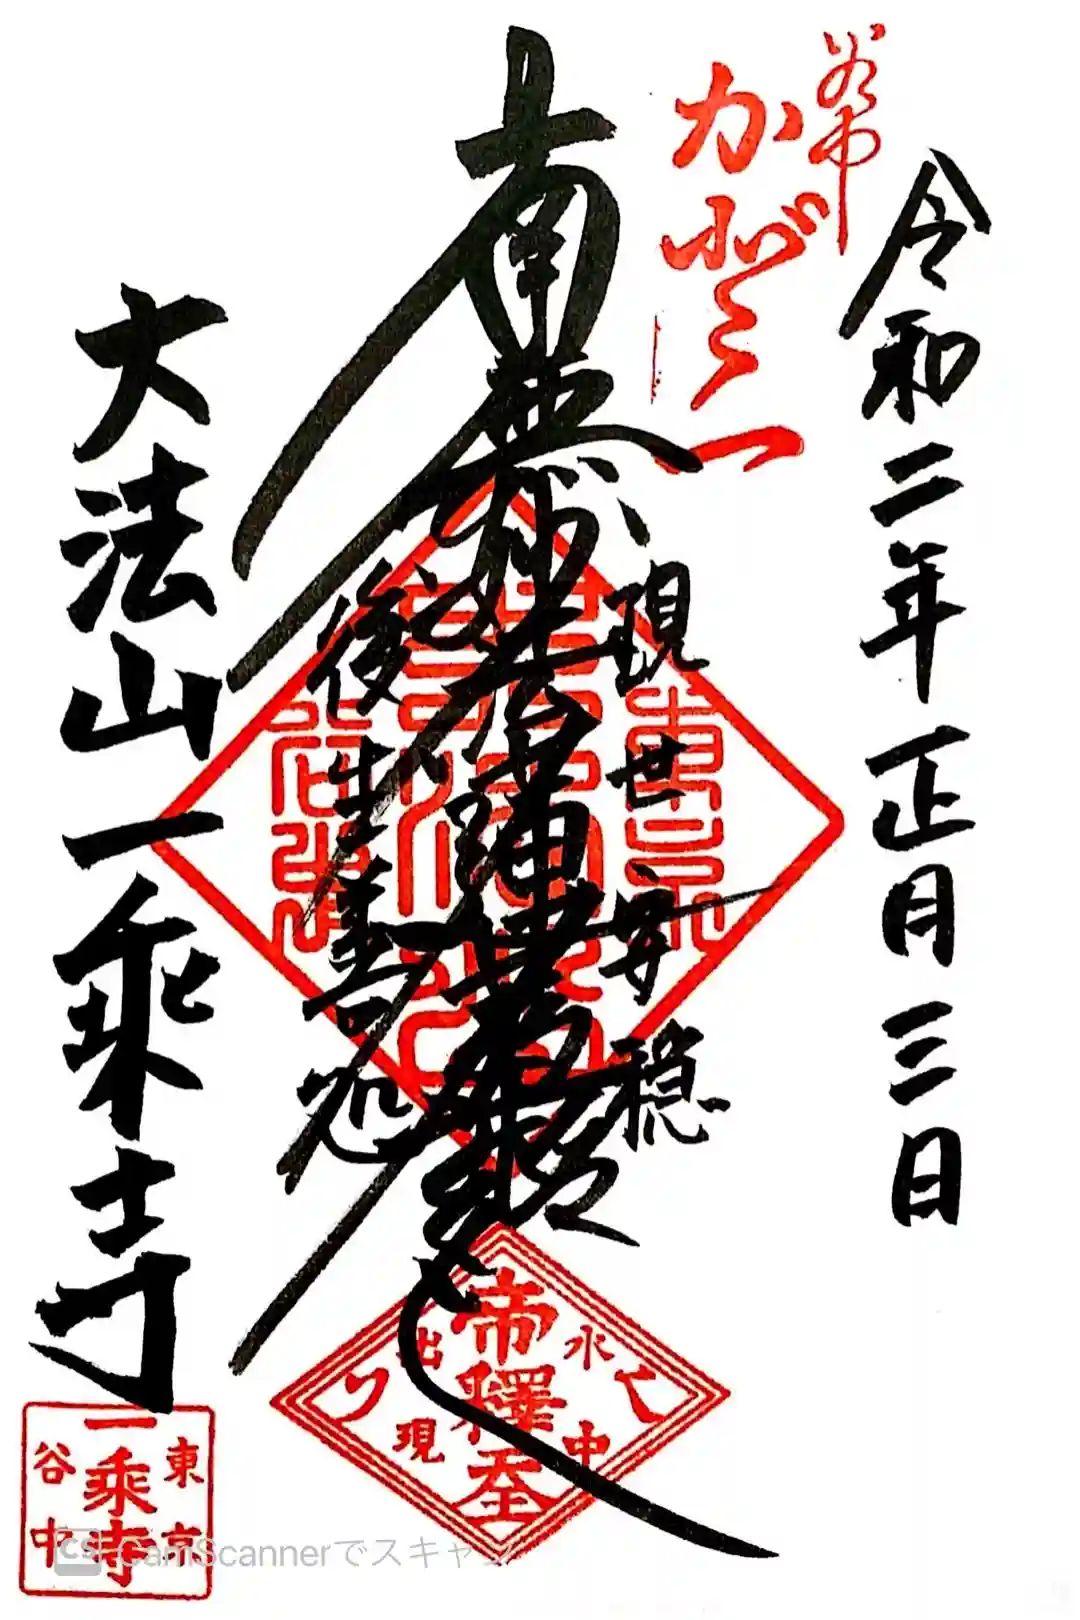 令和二年正月三日
谷中
かがみ
現世安穏
南無妙法蓮華経
後生善処
大法山一乗寺
水中
帝釋天
出現
東京
一乗寺
谷中
CS CamScannerでスキャン